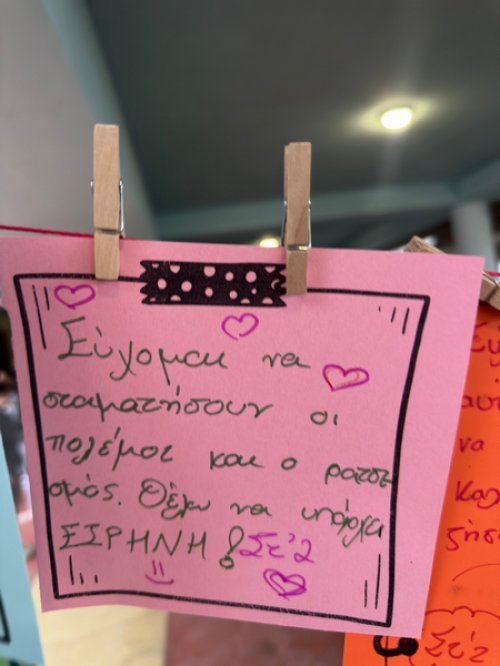 Εύχομαι να
σταματήσουν οι
πολέμοι και ο ρατσι
σμός. Θέλω να υπάρχει
ΕΙΡΗΝΗ! Στ'2
αυτ
να
Στ'2